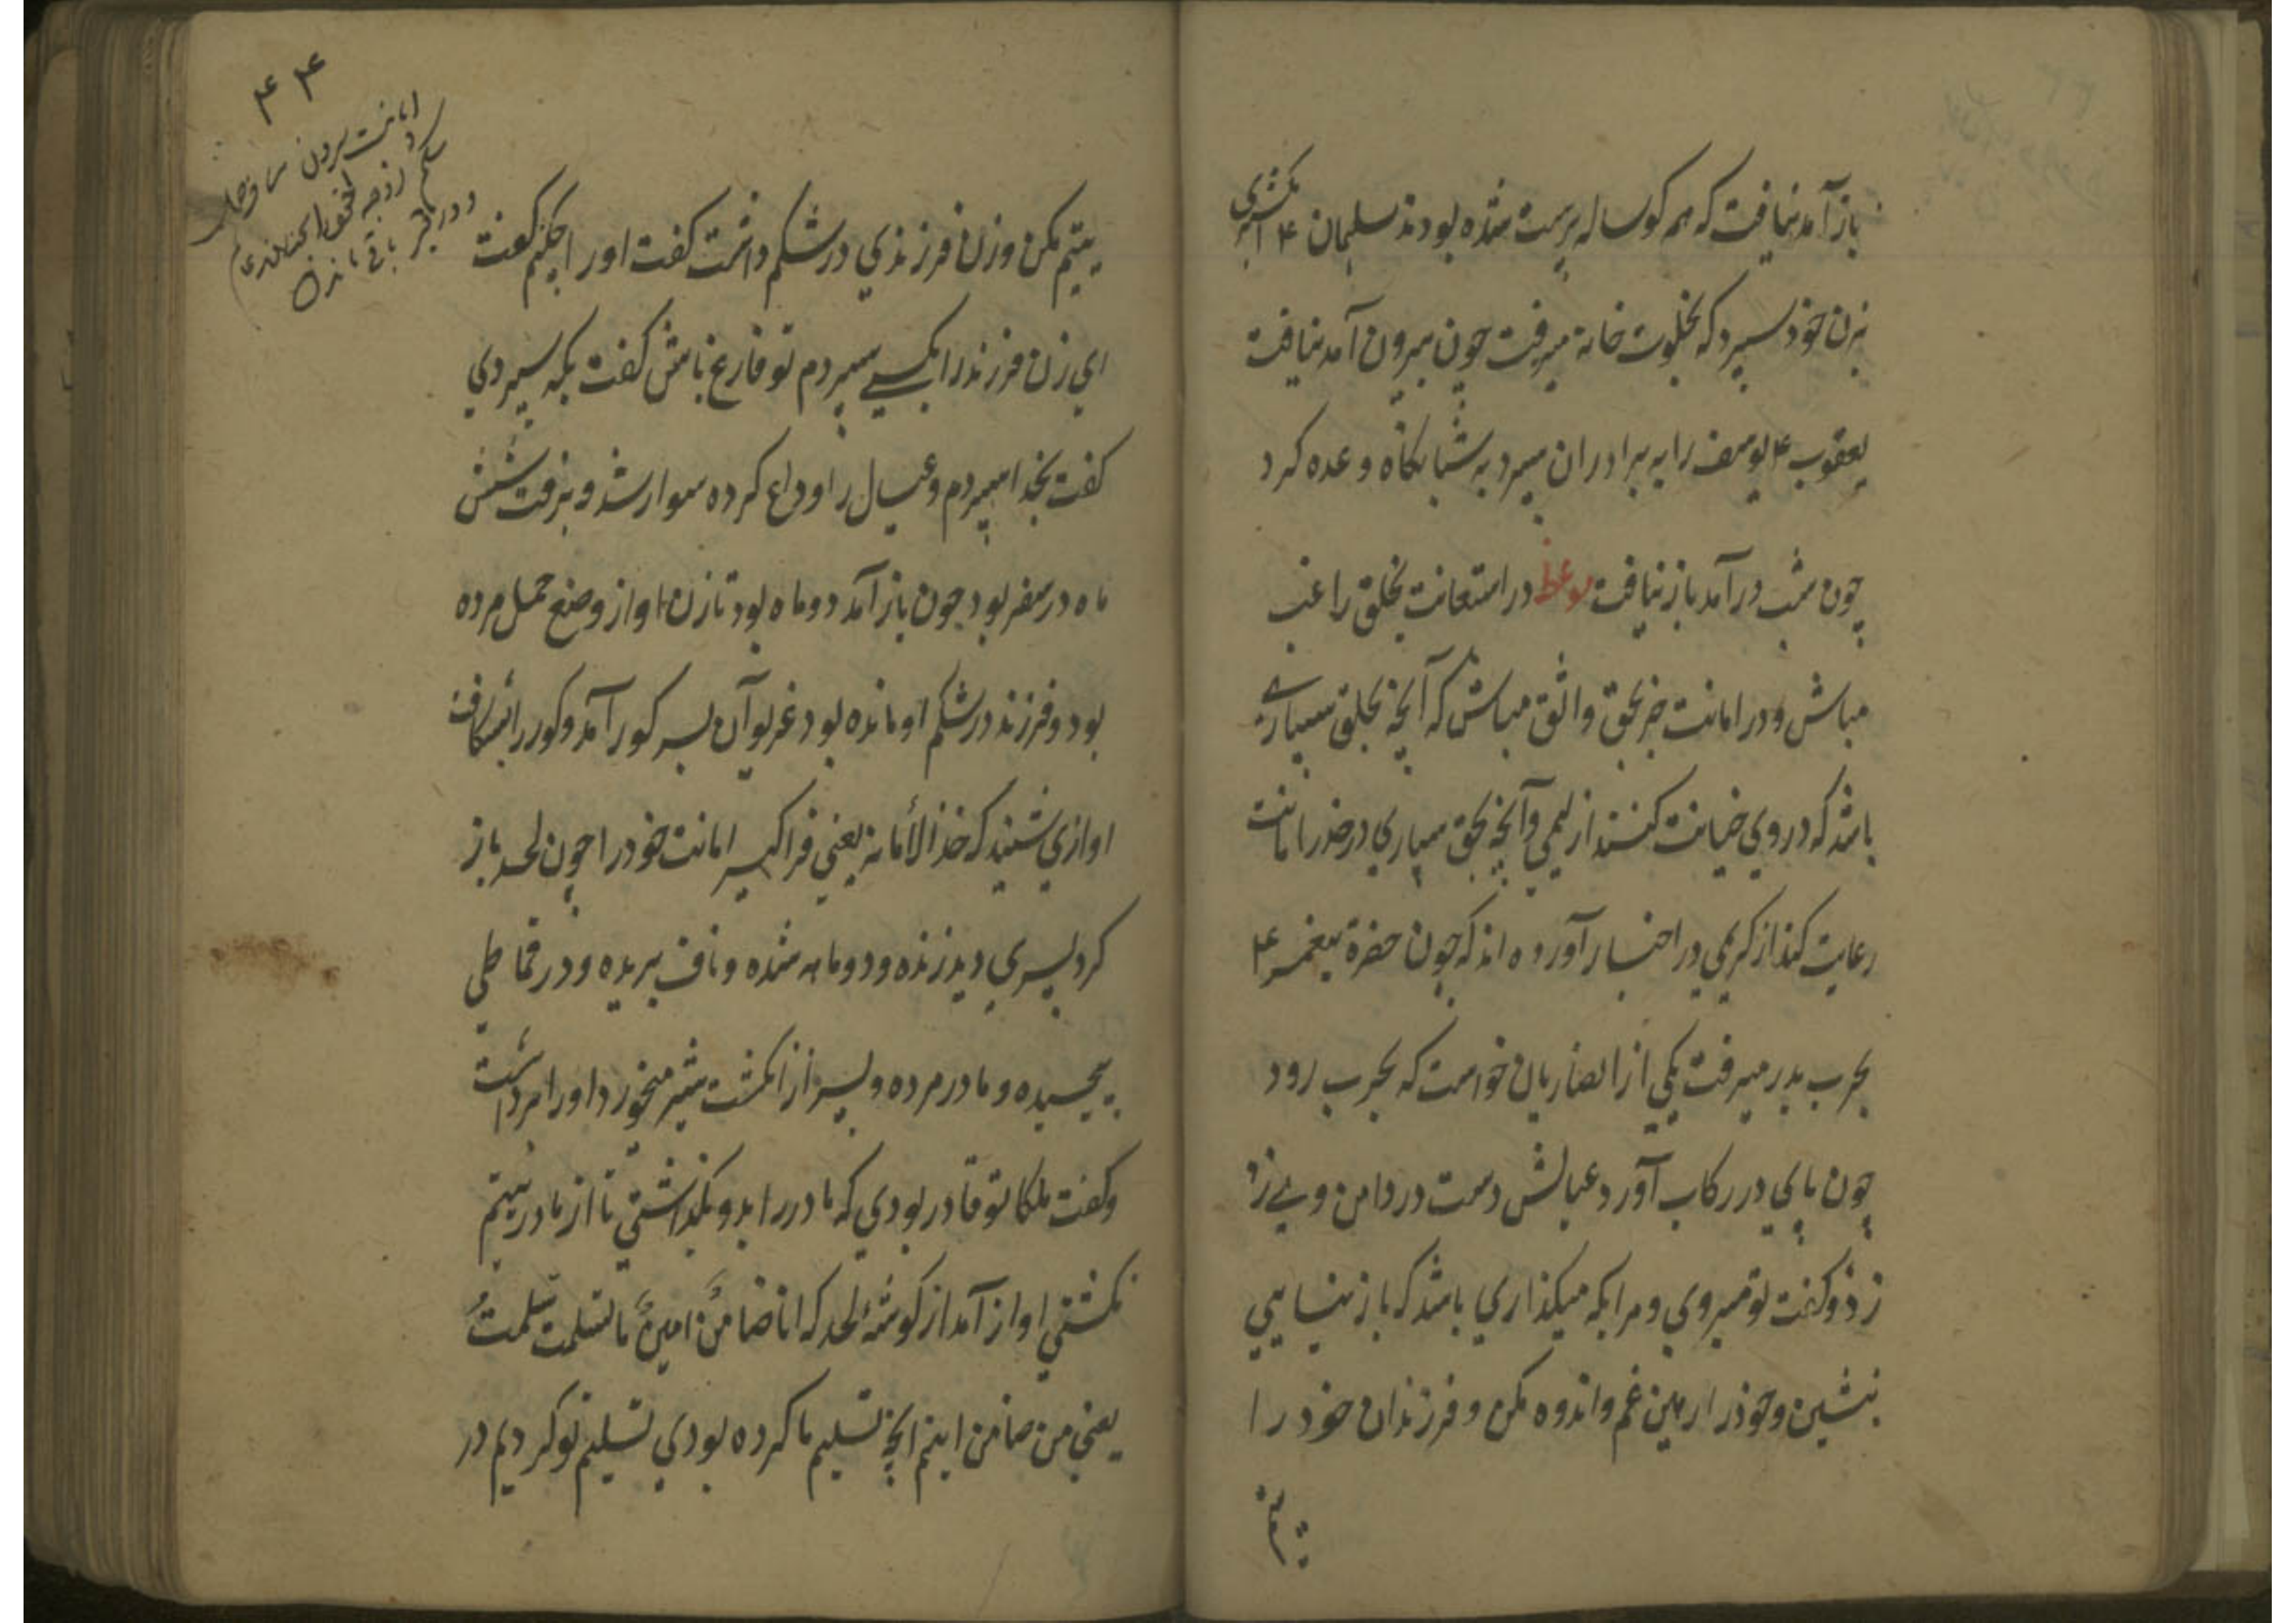 باز آمد نیافت که هم کوساله پرست شده بودند سلیمان ۴ انگشتری
بزن خود سپرد که بخلوت خانه میرفت چون بیرون آمد نیافت
یعقوب ۴ یوسف را به برادران سپرد به شبانگاه وعده کرد
چون شب در آمد باز نیافت موعظ در استعانت بخلق راغب
مباش و در امانت جز بحق واثق مباش که آنچه بخلق سپاری
باشد که در وی خیانت کنند از لیمی و آنچه بحق سپاری در خدر امانت
رعایت کند از کریمی در اخبار آورده اند که چون حضرة پیغمبر ۴
بحرب بدر میرفت یکی از انصاریان خواست که بحرب رود
چون پای در رکاب آورد عیالش دست در دامن وی زد
زد و کفت تو میروی و مرا بکه میکذاری باشد که باز نیایی
بنشین و خود را رهین غم و اندوه مکن و فرزندان خود را
یتیم
۴۴
امانت
شکم
باقی ماندن
یتیم مکن و زن فرزندی در شکم داشت کفت اورا چکنم کفت
ای زن فرزند را بکسی سپردم تو فارغ باش کفت بکه سپردی
کفت بخدا سپردم و عیال را وداع کرده سوار شد و برفت شش
ماه در سفر بود چون باز آمد دو ماه بود تا زن او از وضع حمل مرده
بود و فرزند در شکم او مانده بود غریوان بسر کور آمد و کور را بشکافت
اوازی شنید که خذ الأمانة یعنی فرا کیر امانت خود را چون لحد باز
کرد پسری دید زنده و دو ماهه شده و ناف بریده و در قماطی
پیچیده و مادر مرده و پسر از انکشت شیر میخورد اورا برداشت
و کفت ملکا تو قادر بودی که مادر را بدو بکذاشتی تا از مادر یتیم
نکشتی اواز آمد از کوشهٔ لحد که انا ضامن امین ما تسلمت سلمت
یعنی من ضامن اینم انچه تسلیم ما کرده بودی تسلیم تو کردیم در